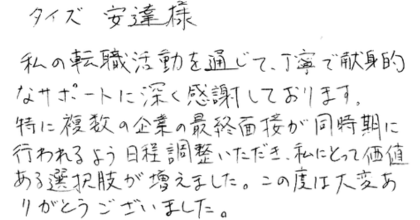 タイズ 安達様
私の転職活動を通じて、丁寧で献身的
なサポートに深く感謝しております。
特に複数の企業の最終面接が同時期に
行われるよう日程調整いただき、私にとって価値
ある選択肢が増えました。この度は大変あ
りがとうございました。